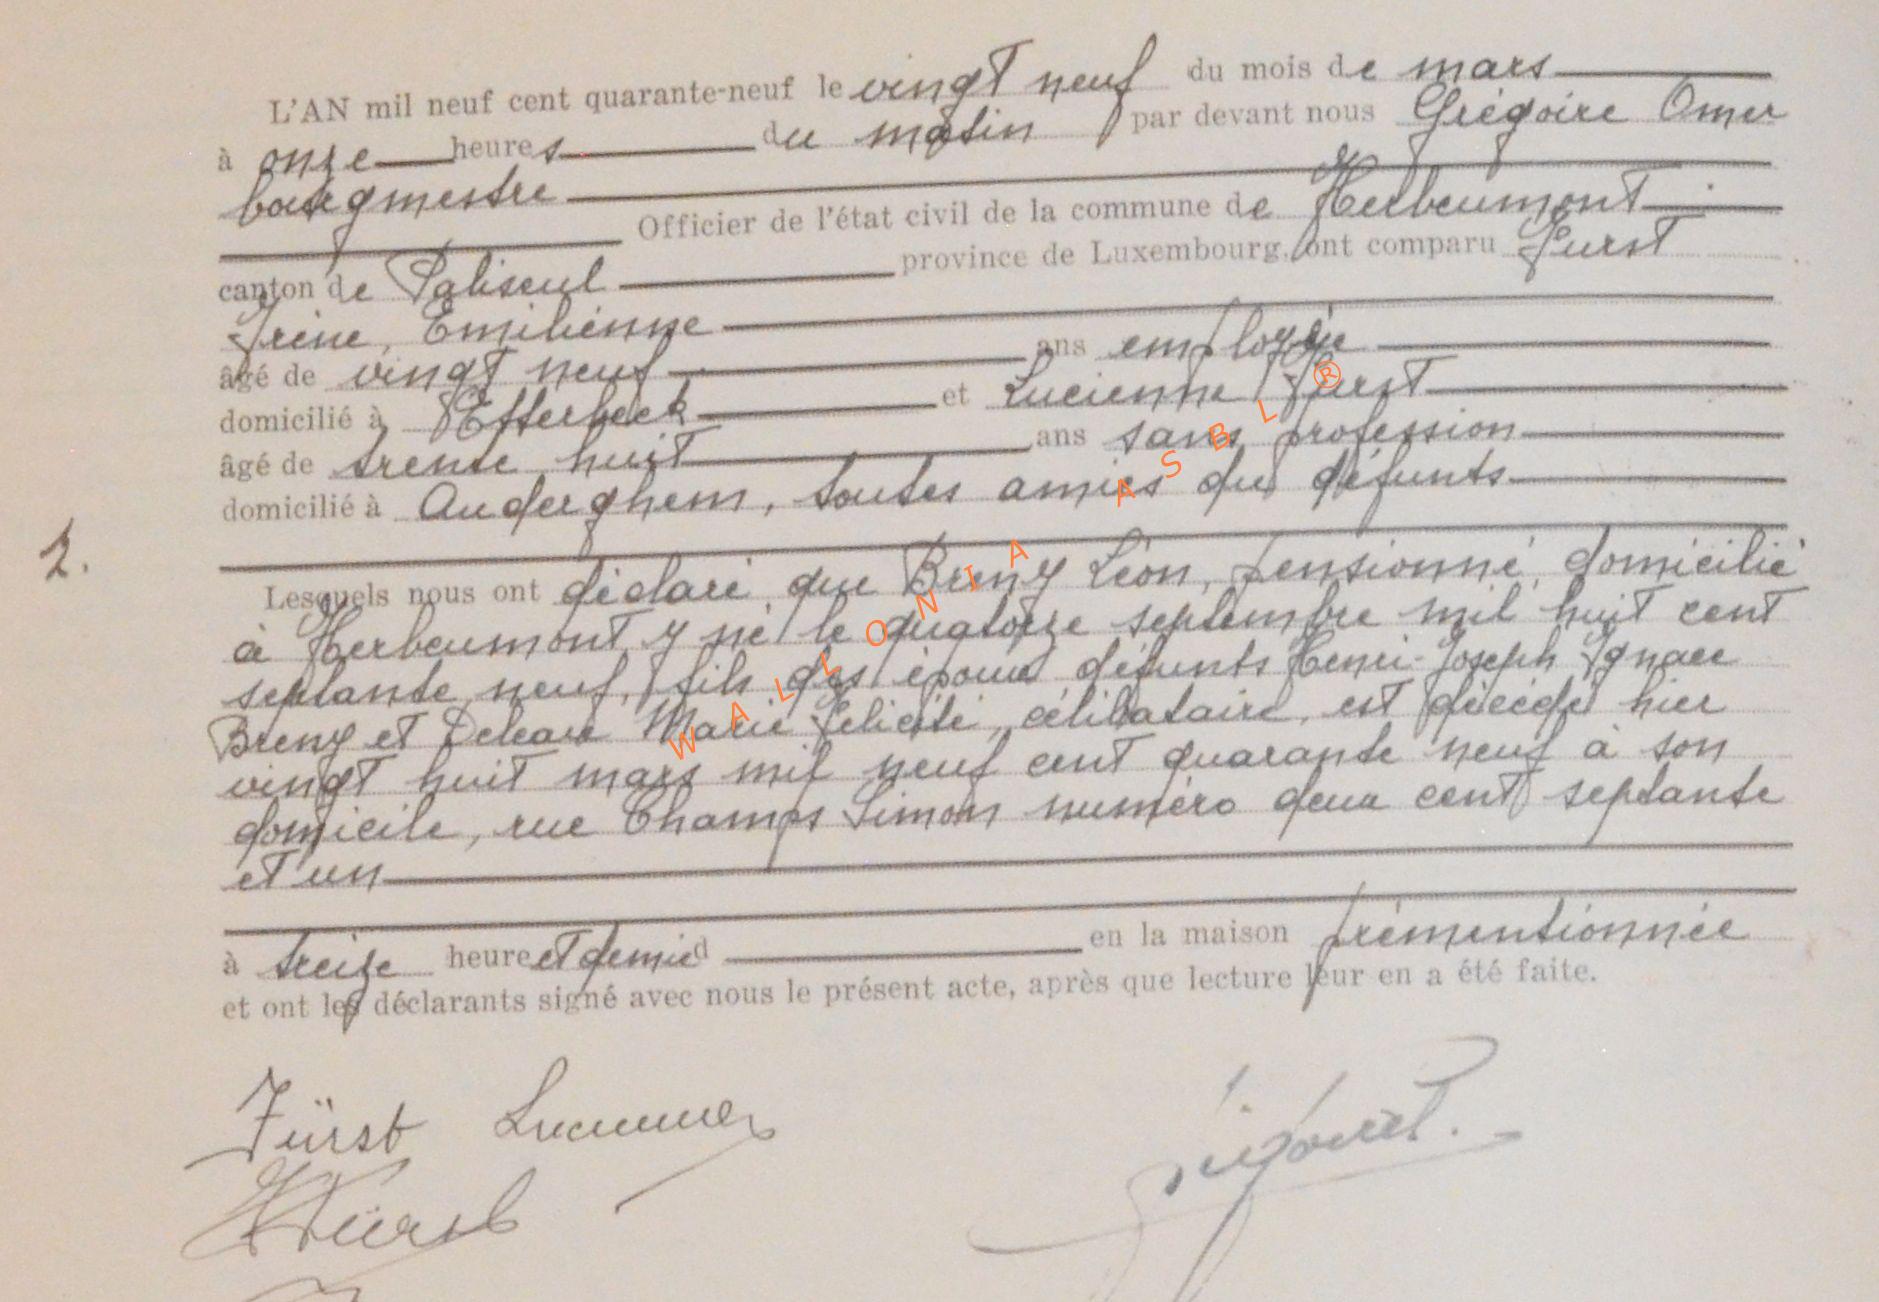 L'AN mil neuf cent quarante-neuf le vingt neuf du mois de mars
à onze heures du matin par devant nous Grégoire Omer
bourgmestre
Officier de l'état civil de la commune de Herbeumont
canton de Paliseul province de Luxembourg, ont comparu Furst
Irène, Emilienne
âgé de vingt neuf ans employée
domicilié à Etterbeek et Lucienne Furst
âgé de trente huit ans sans profession
domicilié à Auderghem, toutes amies du défunts
2.
Lesquels nous ont déclaré que Breny Léon, pensionné, domicilié
à Herbeumont y né le quatorze septembre mil huit cent
septante neuf, fils des époux défunts Henri-Joseph Ignace
Breny et Marie Félicité, célibataire, est décédé hier
vingt huit mars mil neuf cent quarante neuf à son
domicile, rue Champs Simon numéro deux cent septante
et un
à treize heure et demie d en la maison prémentionnée
et ont les déclarants signé avec nous le présent acte, après que lecture leur en a été faite.
Fürst Lucienne
Fürst
WALLONIA ASBL ®